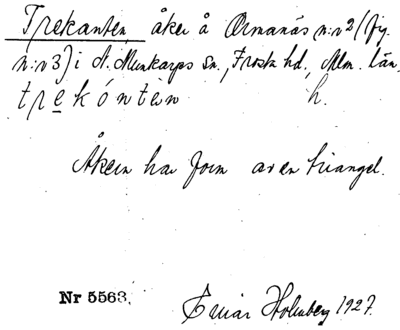 Trekanten, åker å Ormanäs n:r 2 (fy.
n:r 3) i N. Munkarps sn., Frosta hd., Mlm. län.
trekóntèn h.
Åkern har form av en triangel.
Nr 5563. Einar Holmberg 1927.